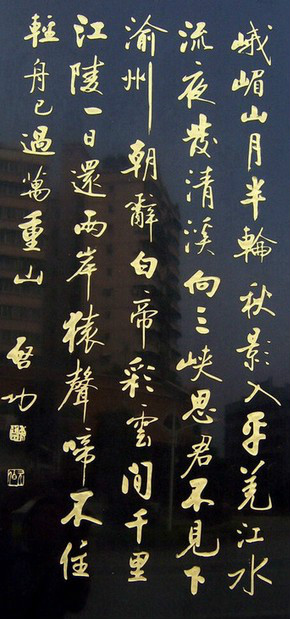 峨嵋山月半輪秋影入平羌江水
流夜發清溪向三峽思君不見下
渝州朝辭白帝彩雲間千里
江陵一日還兩岸猿聲啼不住
輕舟已過萬重山
啓功